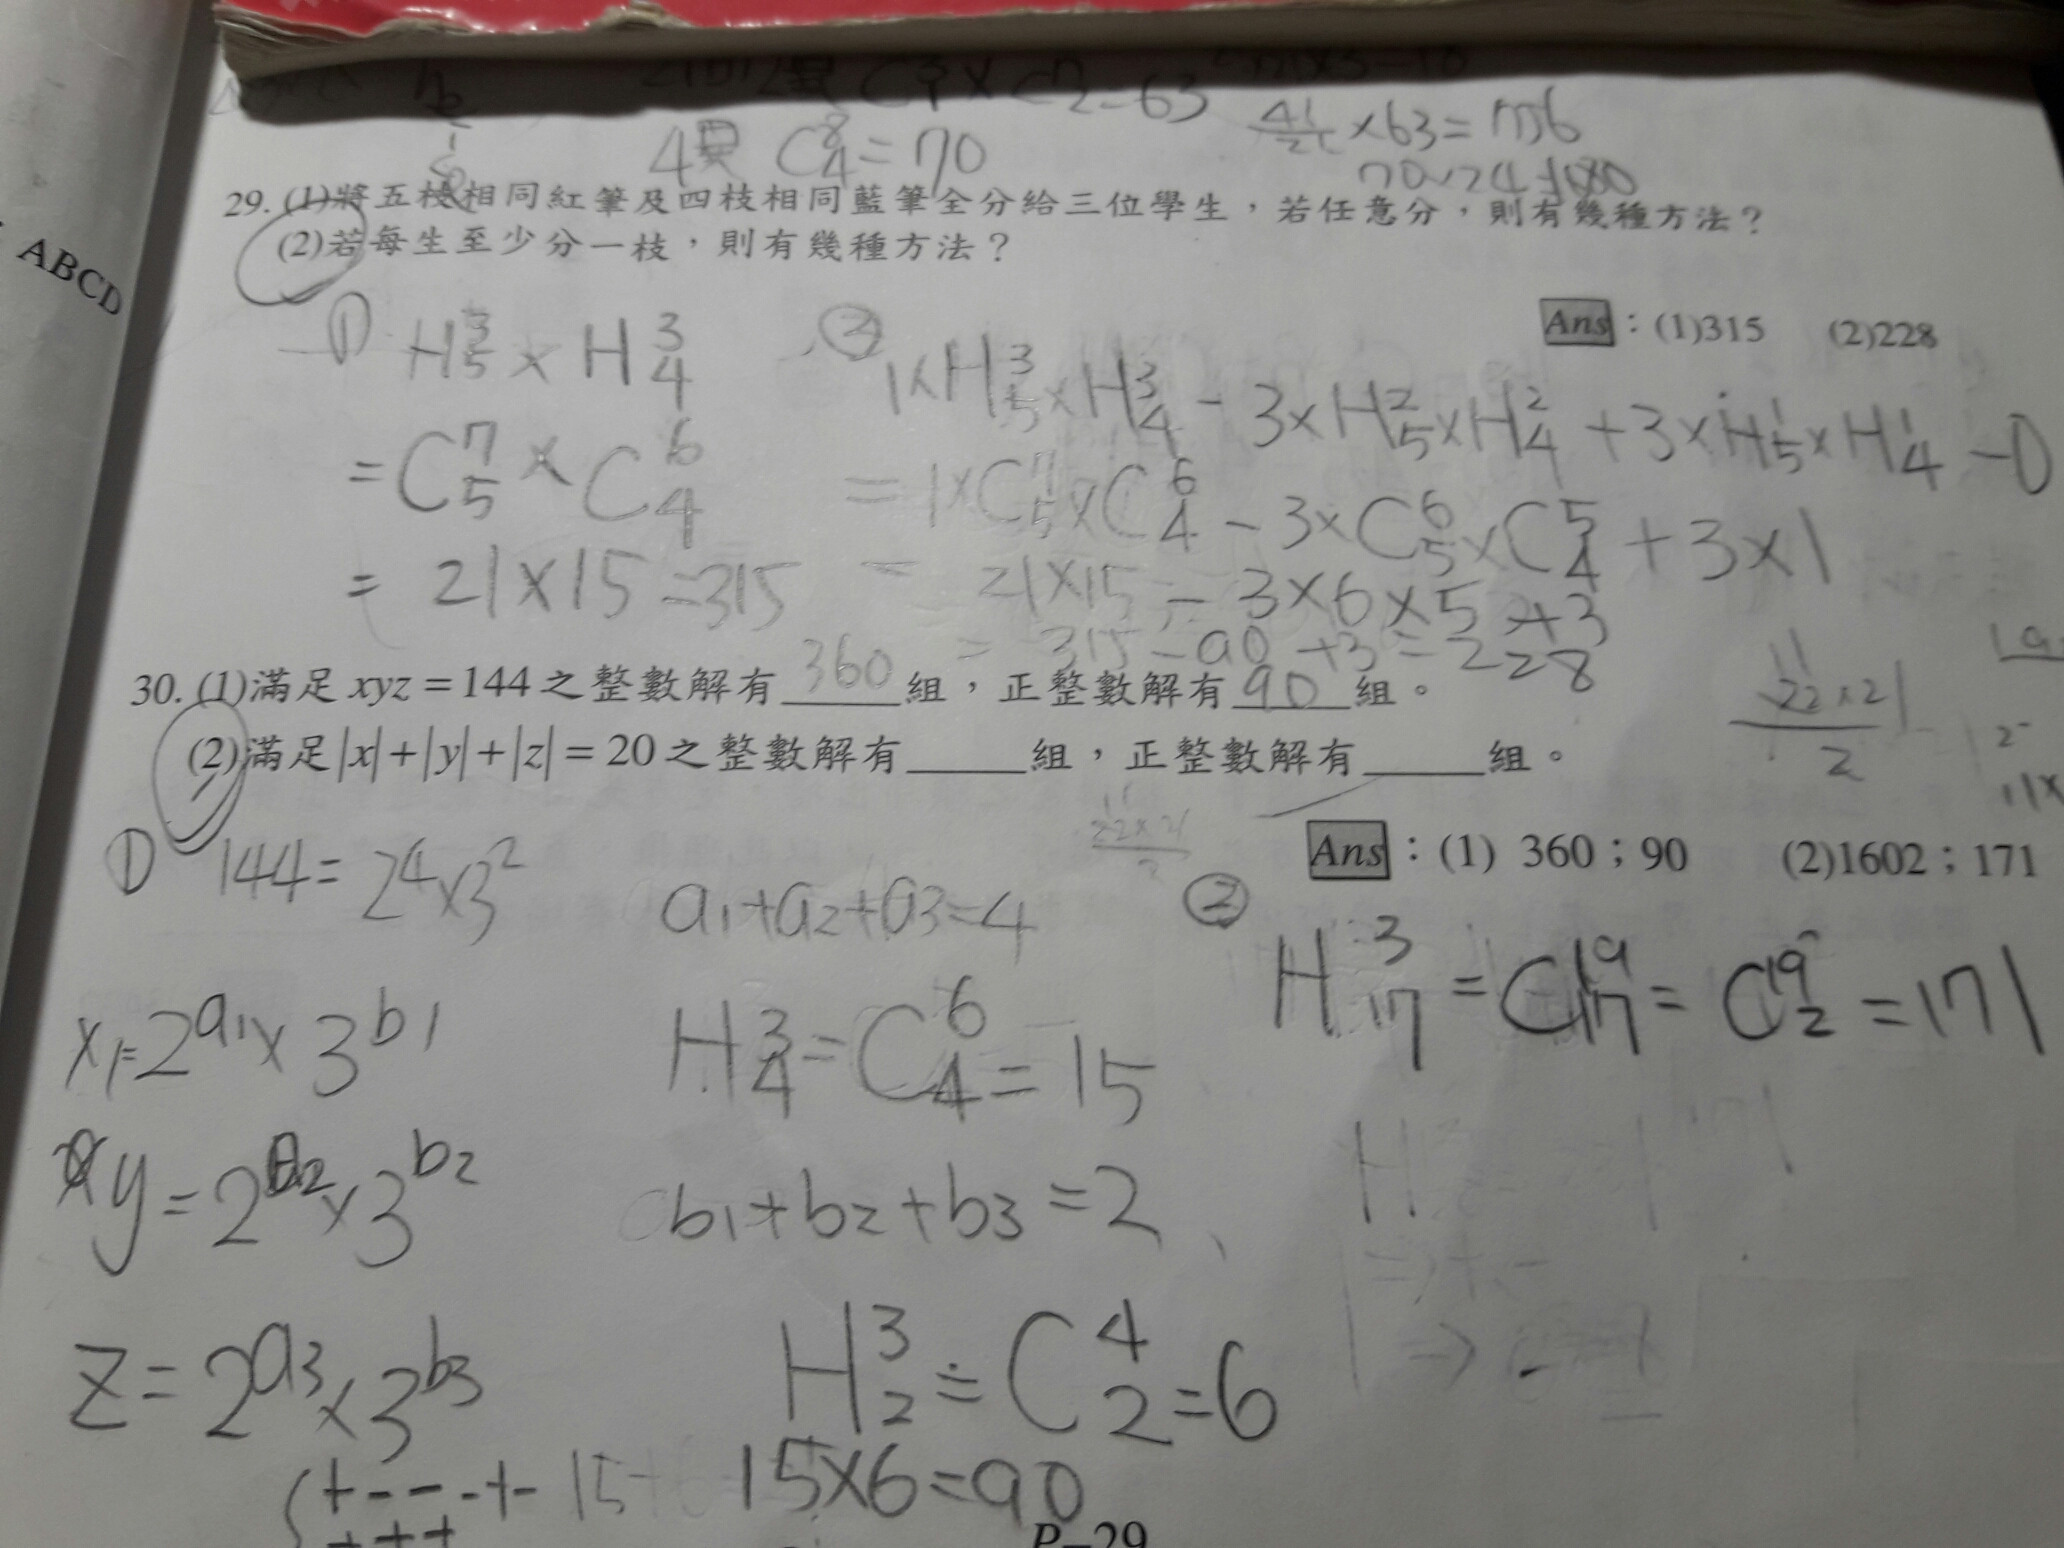 ABCD
4異 C⁸₄=70
×63=
29. (1)將五枝相同紅筆及四枝相同藍筆全分給三位學生，若任意分，則有幾種方法？
(2)若每生至少分一枝，則有幾種方法？
Ans：(1)315 (2)228
① H³₅×H³₄
=C⁷₅×C⁶₄
=21×15=315
② 1×H³₅×H³₄-3×H²₅×H²₄+3×H¹₅×H¹₄-0
=1×C⁷₅×C⁶₄-3×C⁶₅×C⁵₄+3×1
=21×15-3×6×5+3
=315-90+3=228
30. (1)滿足 xyz=144 之整數解有 360 組，正整數解有 90 組。
(2)滿足|x|+|y|+|z|=20 之整數解有_____組，正整數解有_____組。
22×21
2
Ans：(1) 360；90 (2)1602；171
① 144=2⁴×3²
x=2^a₁×3^b₁
y=2^a₂×3^b₂
z=2^a₃×3^b₃
a₁+a₂+a₃=4
H³₄=C⁶₄=15
b₁+b₂+b₃=2
H³₂=C⁴₂=6
15×6=90
② H³₁₇=C¹⁹₁₇=C¹⁹₂=171
+-- -+-
+++
P-29